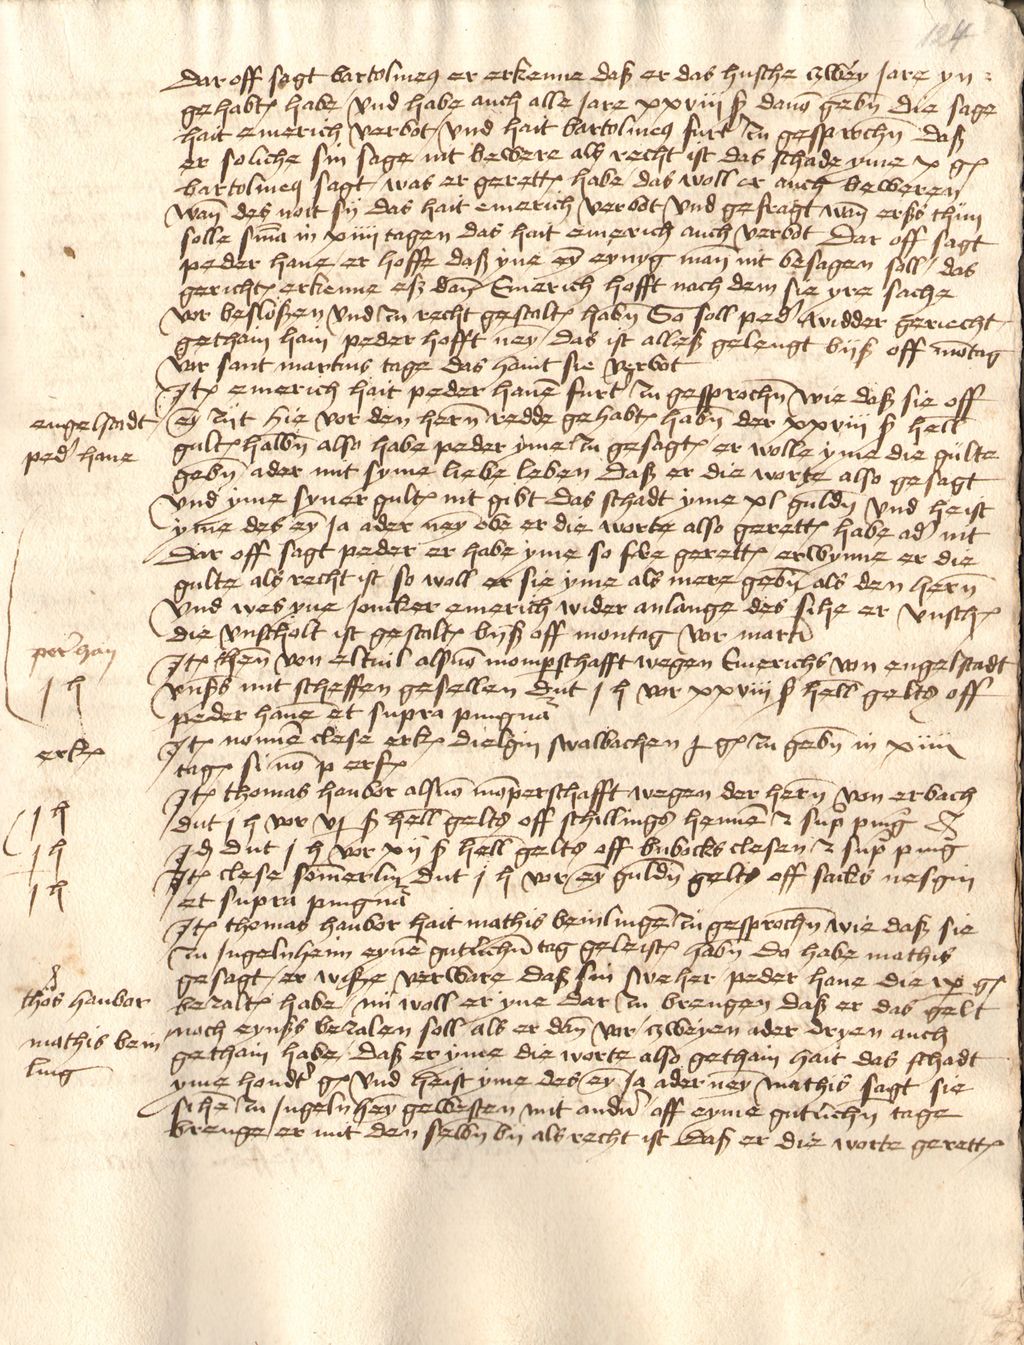 124
Dar off sagt bartolmeꝰ er erkenne daß er das husche zwey jare yn
gehabt habe vnd habe auch alle jare xxviij ß dauō gebn̄ die sage
hait emerich verbot vnd hait bartolmeꝰ furt zu gesprochn̄ daß
er soliche sin sage nit bewere als recht ist das schade yme x gˀ
bartolmeꝰ sagt was er gerett habe das woll er auch beweren
wan̄ des noit sij das hait emerich verbot vnd gefragt wan̄ erß thun
solle sin̄a in xiiij tagen das hait emerich auch verbot Dar off sagt
peder hane er hoffe daß yne eȳ eynyg man nit besagen soll das
gericht erkenne eß dan̄ Emerich hofft nach dem sie yre sache
vor besloßen vnd zu recht gestalt habn̄ So soll pedˀ widder geriecht
gethain hain peder hofft neȳ das ist alleß gelengt bijß off mōtag
vor sant martins tage das haint sie verbot
Itˀ emerich hait peder hanē furt zu gesprochn̄ wie daß sie off
engelstadt
pedˀ hane
eȳ zijt hie vor den hern̄ redde gehabt habn̄ der xxviij ß hell
gult halbn̄ also habe peder yme zu gesagt er wolle yme die gulte
gebn̄ ader mit syme liebe leben daß er die worte also gesagt
vnd yme syner gult nit gibt das schadt yme xl guldn̄ vnd heist
yme des eȳ ja ader neȳ obe er die worte also gerett habe adˀ nit
Dar off sagt peder er habe yme so fre gerett erwynne er die
gulte als recht ist so woll er sie yme als mere gebn̄ als den hern̄
vnd wes yne joncker emerich wider anlange des sihe er vnschˀ
die vnscholt ist gestalt bijß off montag vor marti
perˀ han
Itˀ hen̄ von eltuil alsuō momperschafft wegen Emerichs von engelstadt
j h
vnßs mit scheffen gesellen dut j h vor xxviij ß hell gelts off
peder hane et supra pingnā
erkˀ
Itˀ nonnē clese erkˀ dielgin swalbachen j gˀ zu gebn̄ in xiiij
tagˀ si nō p erfˀ
Itˀ thomas hanbor alsuō mōperschafft wegen der hern̄ von erbach
j h
dut j h vor vj ß hell gelts off schillings hennē z supˀ pingˀ
j h
Idˀ dut j h vor xij ß hell gelts off bubocks clesen z supˀ ping
j h
Itˀ clese somerlin dut j h vor eȳ guldn̄ gelts off sacks nesgin
et supra pingnā
Itˀ thomas hanbor hait mathis beinlingē zu gesprochn̄ wie daß sie
zu Ingelnheim eynē gutlichn̄ tag geleist habn̄ do habe mathis
gesagt er wiße verware daß sin sweher peder hane die gˀ
thōs hanbor
bezalt habe nu woll er yne dar zu brengen daß er das gelt
mathis bein
ling
noch eynßs bezalen soll als er dan̄ vor zweyen ader dryen auch
gethain habe daß er yme die worte also gethain hait das schadt
yme hondˀt gˀ vnd heist yme des eȳ ja ader neȳ mathis sagt sie
sihē zu Ingelnheȳ gewesten mit andˀn̄ off eyme gutlichn̄ tage
brenge er mit den selbn̄ bij als recht ist daß er die worte gerett